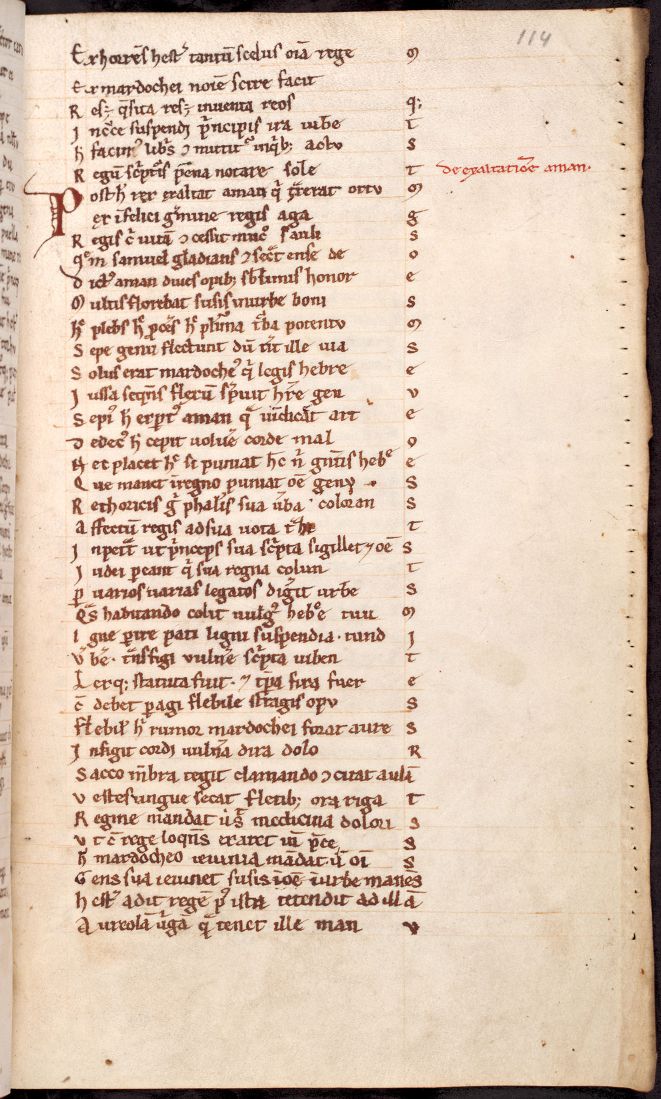 114
Exhorrēs hestʼ tantū scelus oīa rege m
Ex mardochei noīe scire facit
Res; q̄sita res; inuenta reos q;
Incē suspendi p̄ncipis ira iube t
h facinʼ libʼs ⁊ mittit inq̄b; actu s
Regū sc̄ptʼs pēna notare sole t
de exaltatiōe aman.
Post h rex exaltat aman q̄ t̄xerat ortu m
ex īfelici gʼmine regis aga g
Regis c̄ uitā ⁊ cessit nūc sauli s
qʼm samuel gladians ⁊ sec̄t ense de o
dictʼ aman diues opib; sb̄limis honor e
Multis florebat susis inurbe boni s
hʼ plebs hʼ pcēs hʼ plʼima tʼba potentu m
Sepe genu flectunt dū tʼit ille uia s
Solus erat mardocheʼ qʼ legis hebre e
Iussa seqn̄s flexū sp̄uit hʼre gen u
Sepiʼ h expertʼ aman q̄ uīdicat art e
Dedecʼ h cepit voluē corde mal o
Et placet hʼ si puniat hc̄ n̄ gn̄tis hebʼe e
Que manet inregno puniat oē genʼ s
Rethoricis gʼ phalʼis sua ūba coloran s
Affectū regis adsua uota t̄he t
Inpetit ut p̄nceps sua sc̄pta sigillet ⁊ oē s
Iudei pereant q̄ sua regna colun t
p uarios uarias legatos digʼit urbe s
Qʼs habitando colit uulgʼ hebʼe tuu m
Igne pire pati ligni suspendia . tund i
Vʼbe . tn̄sfigi vulnē sc̄pta iuben t
Lexq; statuta fuit . ⁊ tp̄a fixa fuer e
c̄ debet pagi flebile stragis opu s
Flebilʼ h rumor mardochei fixat aure s
Infigit cordi vuln̄a dira dolo R
Sacco mb̄ra tegit clamando ⁊ citat aulā
Vestes ungue secat fletib; ora riga t
Regine mandat ūs medicina dolori s
Vt c̄ rege loqn̄s exaret p̄ce s
h mardocheo ieiunia mādat ū oī s
Gens sua ieiunet susis īoē īurbe manēs
hestʼ adit regē pʼista tetendit ad illā
Aureolā ūga q̄ tenet ille man v